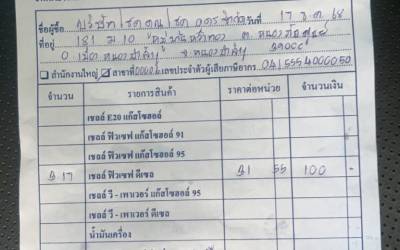 ชื่อผู้ซื้อ บริษัท โชคคูณโชค อุดร จำกัด วันที่ 17 ธ.ค. 68
ที่อยู่ 181 ม 10 ต. หนองภัยศูนย์
อ. เมืองหนองบัวลำภู จ. หนองบัวลำภู 39000
สำนักงานใหญ่ สาขาที่ 00004 เลขประจำตัวผู้เสียภาษีอากร 0415554000050
จำนวน รายการสินค้า ราคาต่อหน่วย จำนวนเงิน
เชลล์ E20 แก๊สโซฮอล์
เชลล์ ฟิวเซฟ แก๊สโซฮอล์ 91
เชลล์ ฟิวเซฟ แก๊สโซฮอล์ 95
3 17 เชลล์ ฟิวเซฟ ดีเซล 31 55 100 -
เชลล์ วี - เพาเวอร์ แก๊สโซฮอล์ 95
เชลล์ วี - เพาเวอร์ ดีเซล
น้ำมันเครื่อง